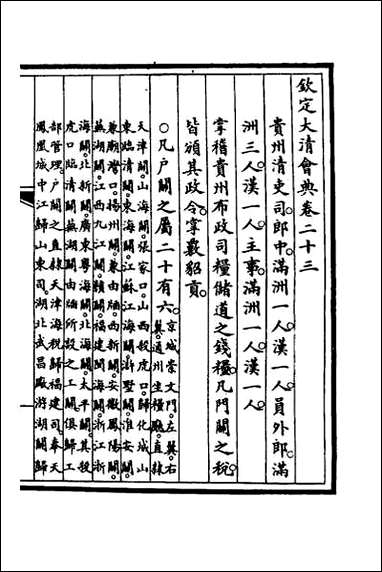 欽定大清會典卷二十三
貴州清吏司郎中滿洲一人漢一人員外郎滿
洲三人漢一人主事滿洲一人漢一人
掌稽貴州布政司糧儲道之錢糧凡門關之稅
皆頒其政令掌數貂貢
○凡戶關之屬二十有六京城崇文門左翼右
翼通州坐糧廳直隸
天津關山海關張家口山西殺虎口歸化城山
東臨清關東海關江蘇江海關滸墅關淮安關
兼廟灣口揚州關兼由閘西新關安徽鳳陽關
蕪湖關江西九江關贛關福建閩海關浙江浙
海關北新關廣東粵海關北海關太平關其殺
虎口臨清關蕪湖關由閘所設之工關俱歸工
部管理戶關之直隸天津海稅歸福建司奉天
鳳凰城中江歸山東司湖北武昌廠游湖關歸